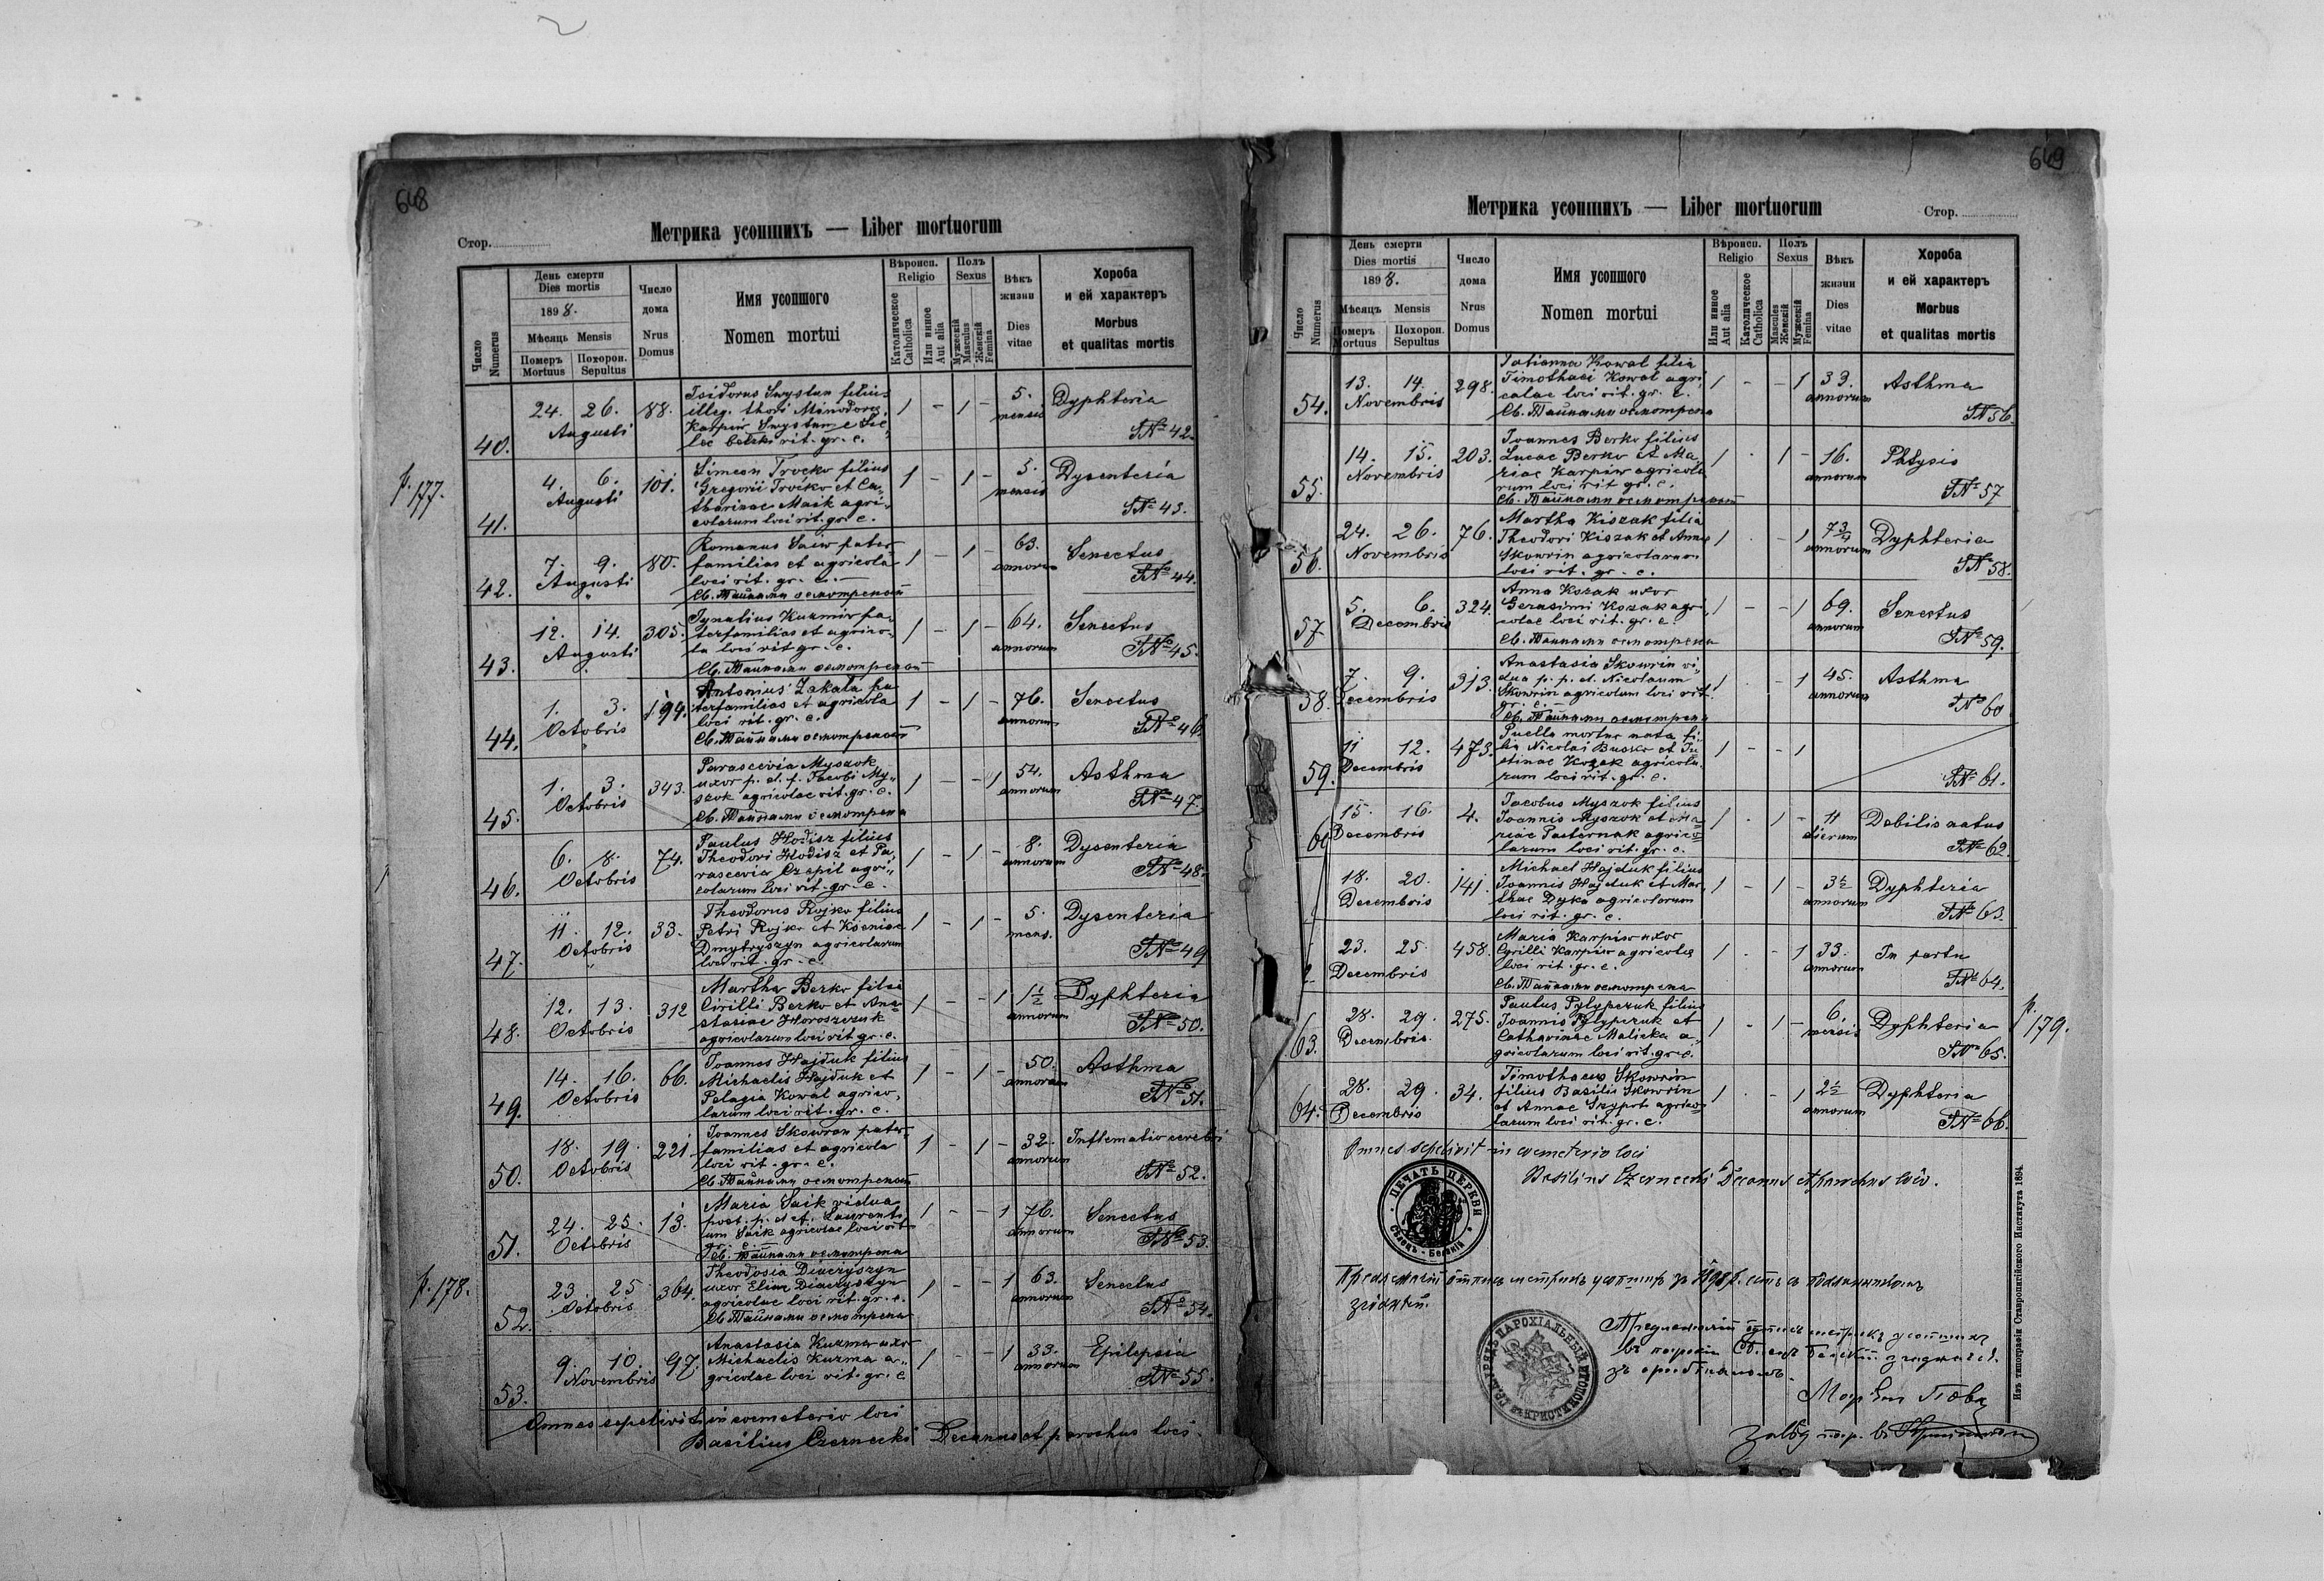 648
Стор.
Метрика усопшихъ — Liber mortuorum
Число Numerus
День смерти
Dies mortis
1898.
Мѣсяць Mensis
Померъ Mortuus
Похорон. Sepultus
Число дома Nrus Domus
Имя усопшого
Nomen mortui
Вѣроисп. Religio
Католическое Catholica
Или инное Aut alia
Полъ Sexus
Мужескій Masculus
Женскій Femina
Вѣкъ жизни Dies vitae
Хороба и ей характеръ
Morbus et qualitas mortis
40. 24. 26. Augusti 88. Isidorus Swystun filius
illeg. thori Minodora
Karpiw Swystun e Sie-
lec bełzki rit. gr. c. 1 - 1 - 5. mensis Dyphteria №42.
p. 177.
41. 4. 6. Augusti 101. Simeon Troćko filius
Gregorii Troćko et Ca-
tharinae Maik agri-
colarum loci rit. gr. c. 1 - 1 - 5. mensis Dysenteria №43.
42. 7. 9. Augusti 80. Romanus Saiw pater
familias et agricola
loci rit. gr. c.
Св. Тайнами осмотреный 1 - 1 - 63. annorum Senectus №44.
43. 12. 14. Augusti 305. Ignatius Kuzmir pa-
terfamilias et agrico-
la loci rit gr. c.
Св. Тайнами осмотреный 1 - 1 - 64. annorum Senectus №45.
44. 1. 3. Octobris 194. Antonius Zakala pa
terfamilias et agricola
loci rit. gr. c.
Св. Тайнами осмотреный 1 - 1 - 76. annorum Senectus №46
45. 1. 3. Octobris 343. Parascevia Myszok
uxor p. d. f. Jacobi My-
szok agricolae rit. gr. c.
Св. Тайнами осмотрена 1 - - 1 54. annorum Asthma №47.
46. 6. 8. Octobris 74. Paulus Hodisz filius
Theodori Hodisz et Pa-
rascevia Czepil agri-
colarum loci rit. gr. c. 1 - 1 - 8. annorum Dysenteria №48.
47. 11. 12. Octobris 33. Theodorus Rojko filius
Petri Rojko et Kseniae
Dmytryszyn agricolarum
loci rit. gr. c. 1 - 1 - 5. mens. Dysenteria №49
48. 12. 13. Octobris 312 Martha Berko filia
Cirilli Berko et Ana-
stasiae Horoszczuk
agricolarum loci rit gr. c. 1 - - 1 1½ annorum Dyphteria №50.
49. 14. 16. Octobris 66. Joannes Hajduk filius
Michaelis Hajduk et
Pelagia Kowal agrico-
larum loci rit. gr. c. 1 - 1 - 50. annorum Asthma №51.
50. 18. 19. Octobris 221. Joannes Skowron pater-
familias et agricola
loci rit. gr. c.
Св. Тайнами осмотреный 1 - 1 - 32. annorum Inflematio cerebri №52.
51. 24. 25. Octobris 13. Maria Saik vidua
post. p. d et. Laurenti
um Saik agricolae loci rit
gr. c.
Св. Тайнами осмотрена 1 - - 1 76. annorum Senectus №53.
p. 178.
52. 23. 25 Octobris 364. Theodosia Diaczyszyn
uxor Eliae Diaczyszyn
agricolae loci rit. gr. c.
Св Тайнами осмотрена 1 - - 1 63. annorum Senectus №54.
53. 9. 10. Novembris 97. Anastasia Kuzma uxor
Michaelis Kuzma a-
gricolae loci rit. gr. c 1 - - 1 33. annorum Epilepsia №55.
Omnes sepelivit in coemeterio loci
Basilius Czernecki Decanus et parochus loci.
649
Метрика усопшихъ — Liber mortuorum
Стор.
Число Numerus
День смерти
Dies mortis
1898.
Мѣсяць Mensis
Померъ Mortuus
Похорон. Sepultus
Число дома Nrus Domus
Имя усопшого
Nomen mortui
Вѣроисп. Religio
Или инное Aut alia
Католическое Catholica
Полъ Sexus
Mascules Женскій
Мужескій Femina
Вѣкъ жизни Dies vitae
Хороба и ей характеръ
Morbus et qualitas mortis
54. 13. 14. Novembris 298. Tatianna Kowal filia
Timothaei Kowal agri
colae loci rit. gr. c.
Св. Тайнами осмотрена 1 - - 1 33. annorum Asthma №56.
55. 14. 15. Novembris 203. Joannes Berko filius
Lucae Berko et Ma-
riae Karpiw agricola
rum loci rit gr. c.
Св. Тайнами осмотреный 1 - 1 - 16. annorum Phtysis №57
56. 24. 26. Novembris 76. Martha Kiszak filia
Theodori Kiszak et Annae
Skowrin agricolarum
loci rit. gr. c. 1 - - 1 annorum Dyphteria №58.
57 5. 6. Decembris 324. Anna Kozak uxor
Gerasimi Kozak agri
colae loci rit. gr. c.
Св. Тайнами осмотрена 1 - - 1 69. annorum Senectus №59.
58. 7. 9. Decembris 313. Anastasia Skowrin vi-
dua p. p. d. Nicolaum
Skowrin agricolam loci rit.
gr. c.
Св. Тайнами осмотрена 1 - - 1 45. annorum Asthma №60
59. 11 12. Decembris 473. Puella mortuo nata fi-
lia Nicolai Busko et Ju
stinae Kozak agricola-
rum loci rit. gr. c. 1 - - 1 №61.
60 15. 16. Decembris 4. Jacobus Myszok filius
Joannis Myszok et Ma-
riae Pasternak agrico
larum loci rit. gr. c. 1 - 1 - 11 dierum Debilis natus №62.
18. 20. Decembris 141. Michael Hajduk filius
Joannis Hajduk et Mar-
thae Dyka agricolarum
loci rit. gr. c. 1 - 1 - 3½ annorum Dyphteria №63.
23. 25. Decembris 458. Maria Karpiw uxor
Cyrilli Karpiw agricolae
loci rit. gr. c.
Св. Тайнами осмотрена 1 - - 1 33. annorum In partu №64.
63. 28. 29. Decembris 275. Paulus Pylypczuk filius
Joannis Pylypczuk et
Catharinae Malicka a-
gricolarum loci rit. gr. c. 1 - 1 - 6. mensis Dyphteria №65.
p. 179.
64. 28. 29. Decembris 34. Timothaeus Skowrin
filius Basilii Skowrin
et Annae Skypot agrico
larum loci rit. gr. c. 1 - - 1 2½ annorum Dyphteria №66.
Omnes sepelivit in coemeterio loci
Basilius Czernecki Decanus et parochus loci.
ПЕЧАТЬ ЦЕРКВИ
Сѣлецъ - Белзкій
згôдный.
Изъ типографіи Ставропигійского Института 1894.